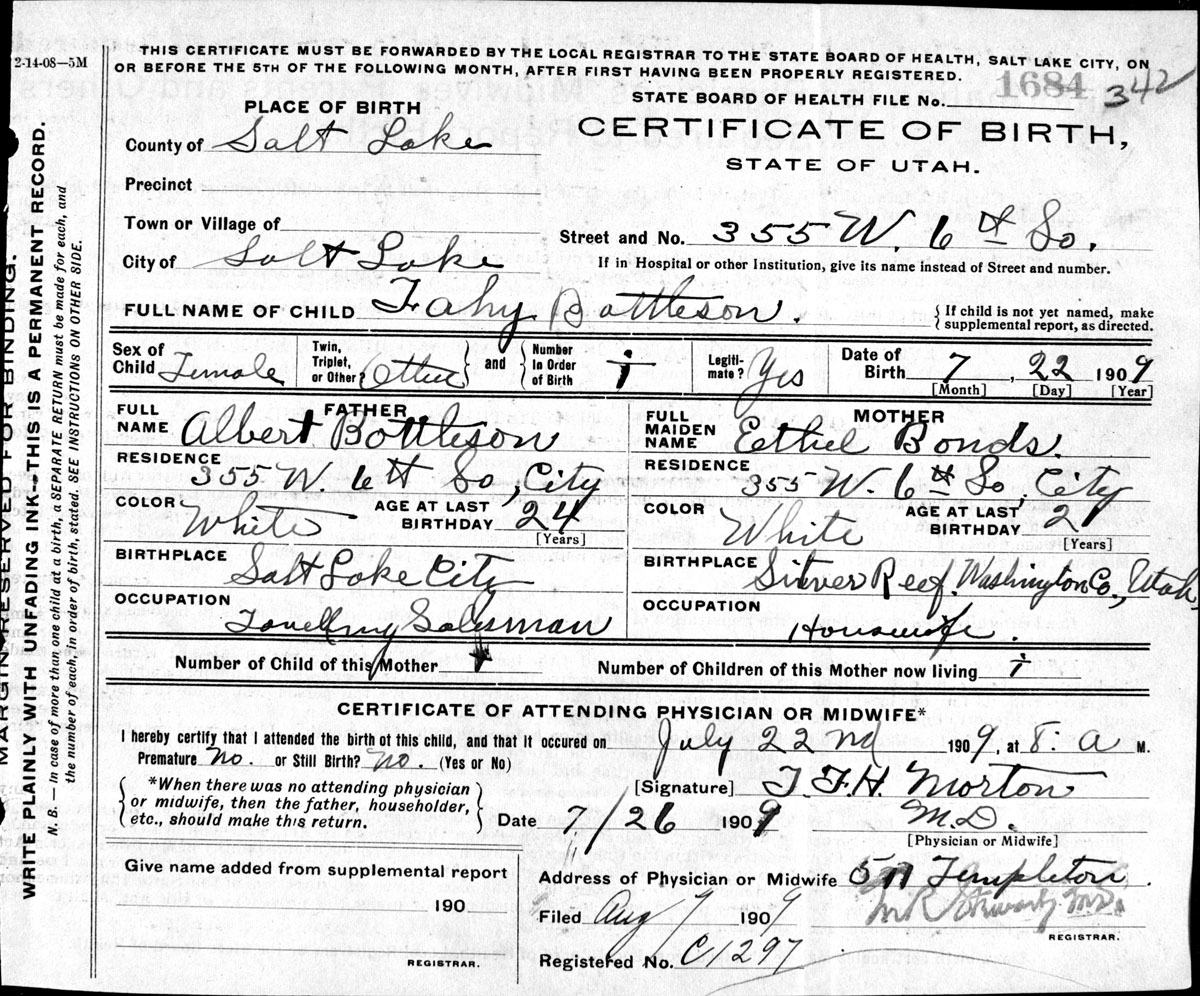 2-14-08—5M
THIS CERTIFICATE MUST BE FORWARDED BY THE LOCAL REGISTRAR TO THE STATE BOARD OF HEALTH, SALT LAKE CITY, ON
OR BEFORE THE 5TH OF THE FOLLOWING MONTH, AFTER FIRST HAVING BEEN PROPERLY REGISTERED.
STATE BOARD OF HEALTH FILE No. 1684 342
PLACE OF BIRTH
CERTIFICATE OF BIRTH,
STATE OF UTAH.
County of Salt Lake
Precinct
Town or Village of
Street and No. 355 W. 6th So.
City of Salt Lake
If in Hospital or other Institution, give its name instead of Street and number.
FULL NAME OF CHILD Fahy Bottleson.
{If child is not yet named, make
supplemental report, as directed.
Sex of Child Female
Twin, Triplet, or Other Other
and
Number In Order of Birth 1
Legiti-mate? Yes
Date of Birth 7, 22 1909
[Month] [Day] [Year]
FATHER
FULL NAME Albert Bottleson
RESIDENCE
355 W. 6th So, City
COLOR White
AGE AT LAST BIRTHDAY 24
[Years]
BIRTHPLACE
Salt Lake City
OCCUPATION
Travelling Salesman
MOTHER
FULL MAIDEN NAME Eethel Bonds.
RESIDENCE
355 W. 6th So, City
COLOR White
AGE AT LAST BIRTHDAY 21
[Years]
BIRTHPLACE
Silver Reef, Washington Co., Utah
OCCUPATION
Housewife.
Number of Child of this Mother 1
Number of Children of this Mother now living 1
CERTIFICATE OF ATTENDING PHYSICIAN OR MIDWIFE*
I hereby certify that I attended the birth of this child, and that it occured on July 22nd 1909, at 8: a M.
Premature No. or Still Birth? No. (Yes or No)
{*When there was no attending physician
or midwife, then the father, householder,
etc., should make this return.}
[Signature] T F.H. Morton
Date 7/26 1909
M.D.
[Physician or Midwife]
Give name added from supplemental report
190
REGISTRAR.
Address of Physician or Midwife 511 Templeton.
Filed Aug 7 1909
REGISTRAR.
Registered No. C1297
MARGIN RESERVED FOR BINDING.
WRITE PLAINLY WITH UNFADING INK—THIS IS A PERMANENT RECORD.
N. B.—In case of more than one child at a birth, a SEPARATE RETURN must be made for each, and
the number of each, in order of birth, stated. SEE INSTRUCTIONS ON OTHER SIDE.